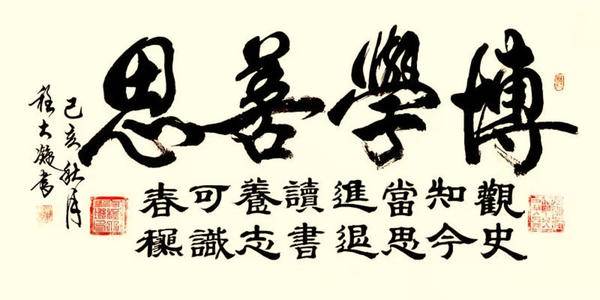 博學善思
觀史
知今
當思
進退
讀書
養志
可識
春穐
己亥秋月